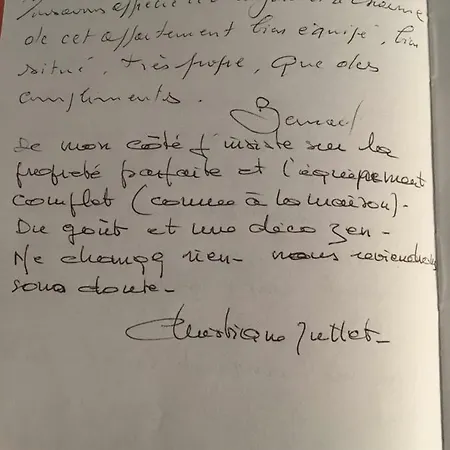 de cet appartement bien équipé, bien
situé, très propre, que des
compliments.
Bernard
De mon côté j'insiste sur la
propreté parfaite et l'équipement
complet (comme à la maison).
Du goût et une déco zen -
Ne changez rien - nous reviendrons
sans doute -